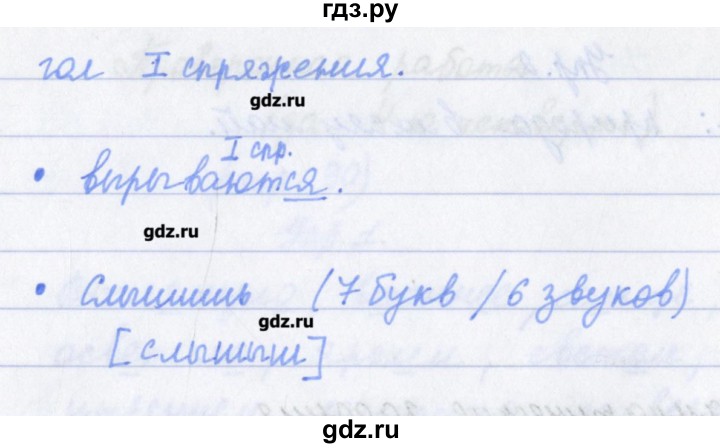 гдз.ру
гол I спряжения.
gdz.ru
I спр.
• вырываются.
gdz.ru
• Слышишь (7 букв / 6 звуков)
gdz.ru
[слышыш]
gdz.ru